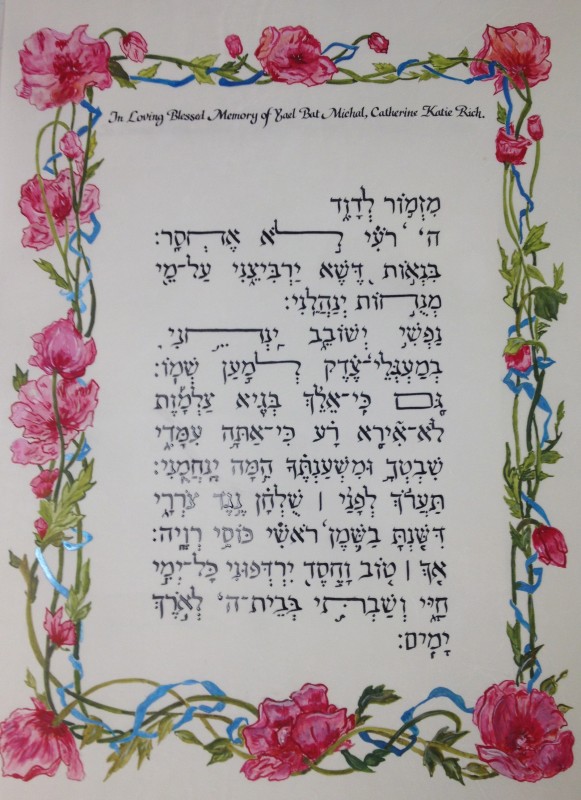 In Loving Blessed Memory of Yael Bat Michal, Catherine Katie Rich.
מִזְמ֗וֹר לְדָ֫וִ֥ד
ה' רֹ֝עִ֗י לֹ֣א אֶחְסָֽר׃
בִּנְא֣וֹת דֶּ֭שֶׁא יַרְבִּיצֵ֑נִי עַל־מֵ֖י
מְנֻח֣וֹת יְנַהֲלֵֽנִי׃
נַפְשִׁ֥י יְשׁוֹבֵ֑ב יַֽנְחֵ֥נִי
בְמַעְגְּלֵי־צֶ֝֗דֶק לְמַ֣עַן שְׁמֽוֹ׃
גַּ֤ם כִּֽי־אֵלֵ֨ךְ בְּגֵ֪יא צַלְמָ֡וֶת
לֹא־אִ֘ירָ֤א רָ֗ע כִּי־אַתָּ֥ה עִמָּדִ֑י
שִׁבְטְךָ֥ וּ֝מִשְׁעַנְתֶּ֗ךָ הֵ֣מָּה יְנַֽחֲמֻֽנִי׃
תַּעֲרֹ֬ךְ לְפָנַ֨י ׀ שֻׁלְחָ֗ן נֶ֥גֶד צֹרְרָ֑י
דִּשַּׁ֖נְתָּ בַשֶּׁ֥מֶן רֹ֝אשִׁ֗י כּוֹסִ֥י רְוָיָֽה׃
אַ֤ךְ ׀ ט֤וֹב וָחֶ֣סֶד יִ֭רְדְּפוּנִי כָּל־יְמֵ֣י
חַיָּ֑י וְשַׁבְתִּ֥י בְּבֵית־ה' לְאֹ֣רֶךְ
יָמִֽים׃